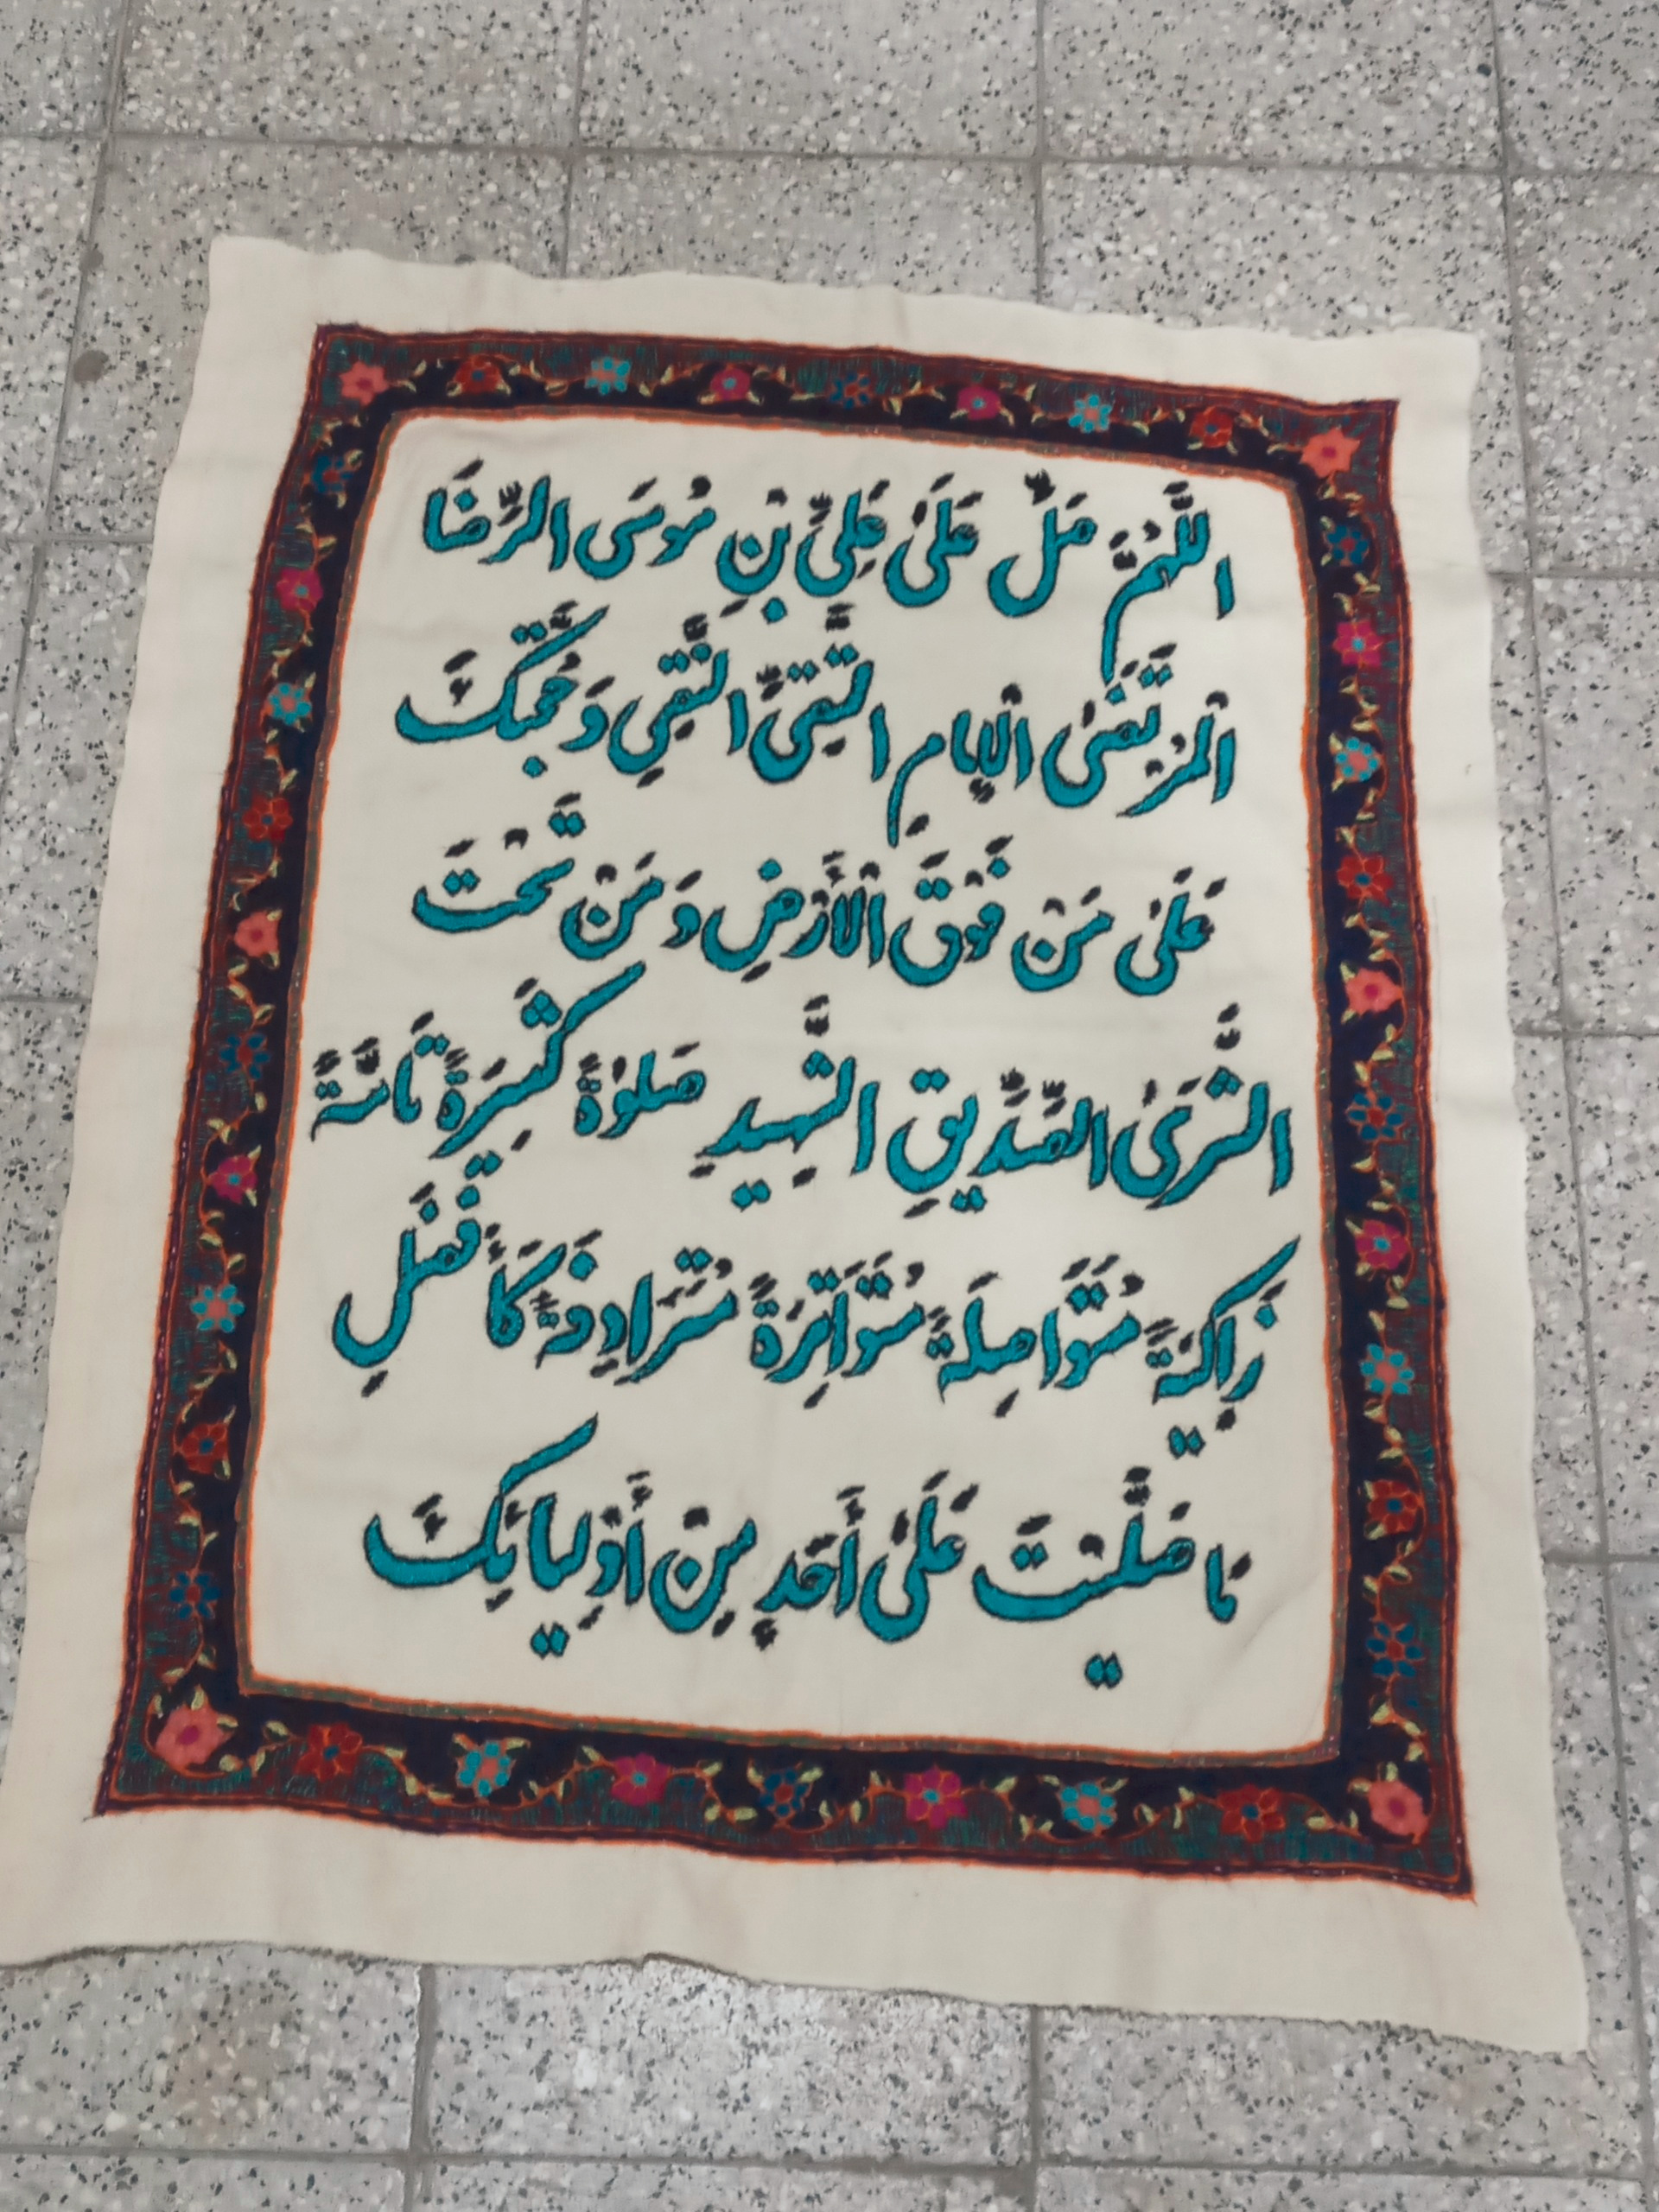 اللَّهُمَّ صَلِّ عَلَىٰ عَلِيِّ بْنِ مُوسَى الرِّضَا
الْمُرْتَضَىٰ الْإِمَامِ التَّقِيِّ النَّقِيِ وَحُجَّتِكَ
عَلَىٰ مَنْ فَوْقَ الْأَرْضِ وَ مَنْ تَحْتَ
الثَّرَىٰ الصِّدِّيقِ الشَّهِيدِ صَلوٰةً كَثِيرَةً تَامَّةً
زَاكِيَةً مُتَوَاصِلَةً مُتَوَاتِرَةً مُتَرَادِفَةً كَأَفْضَلِ
مَا صَلَّيْتَ عَلَىٰ أَحَدٍ مِنْ أَوْلِيائِكَ